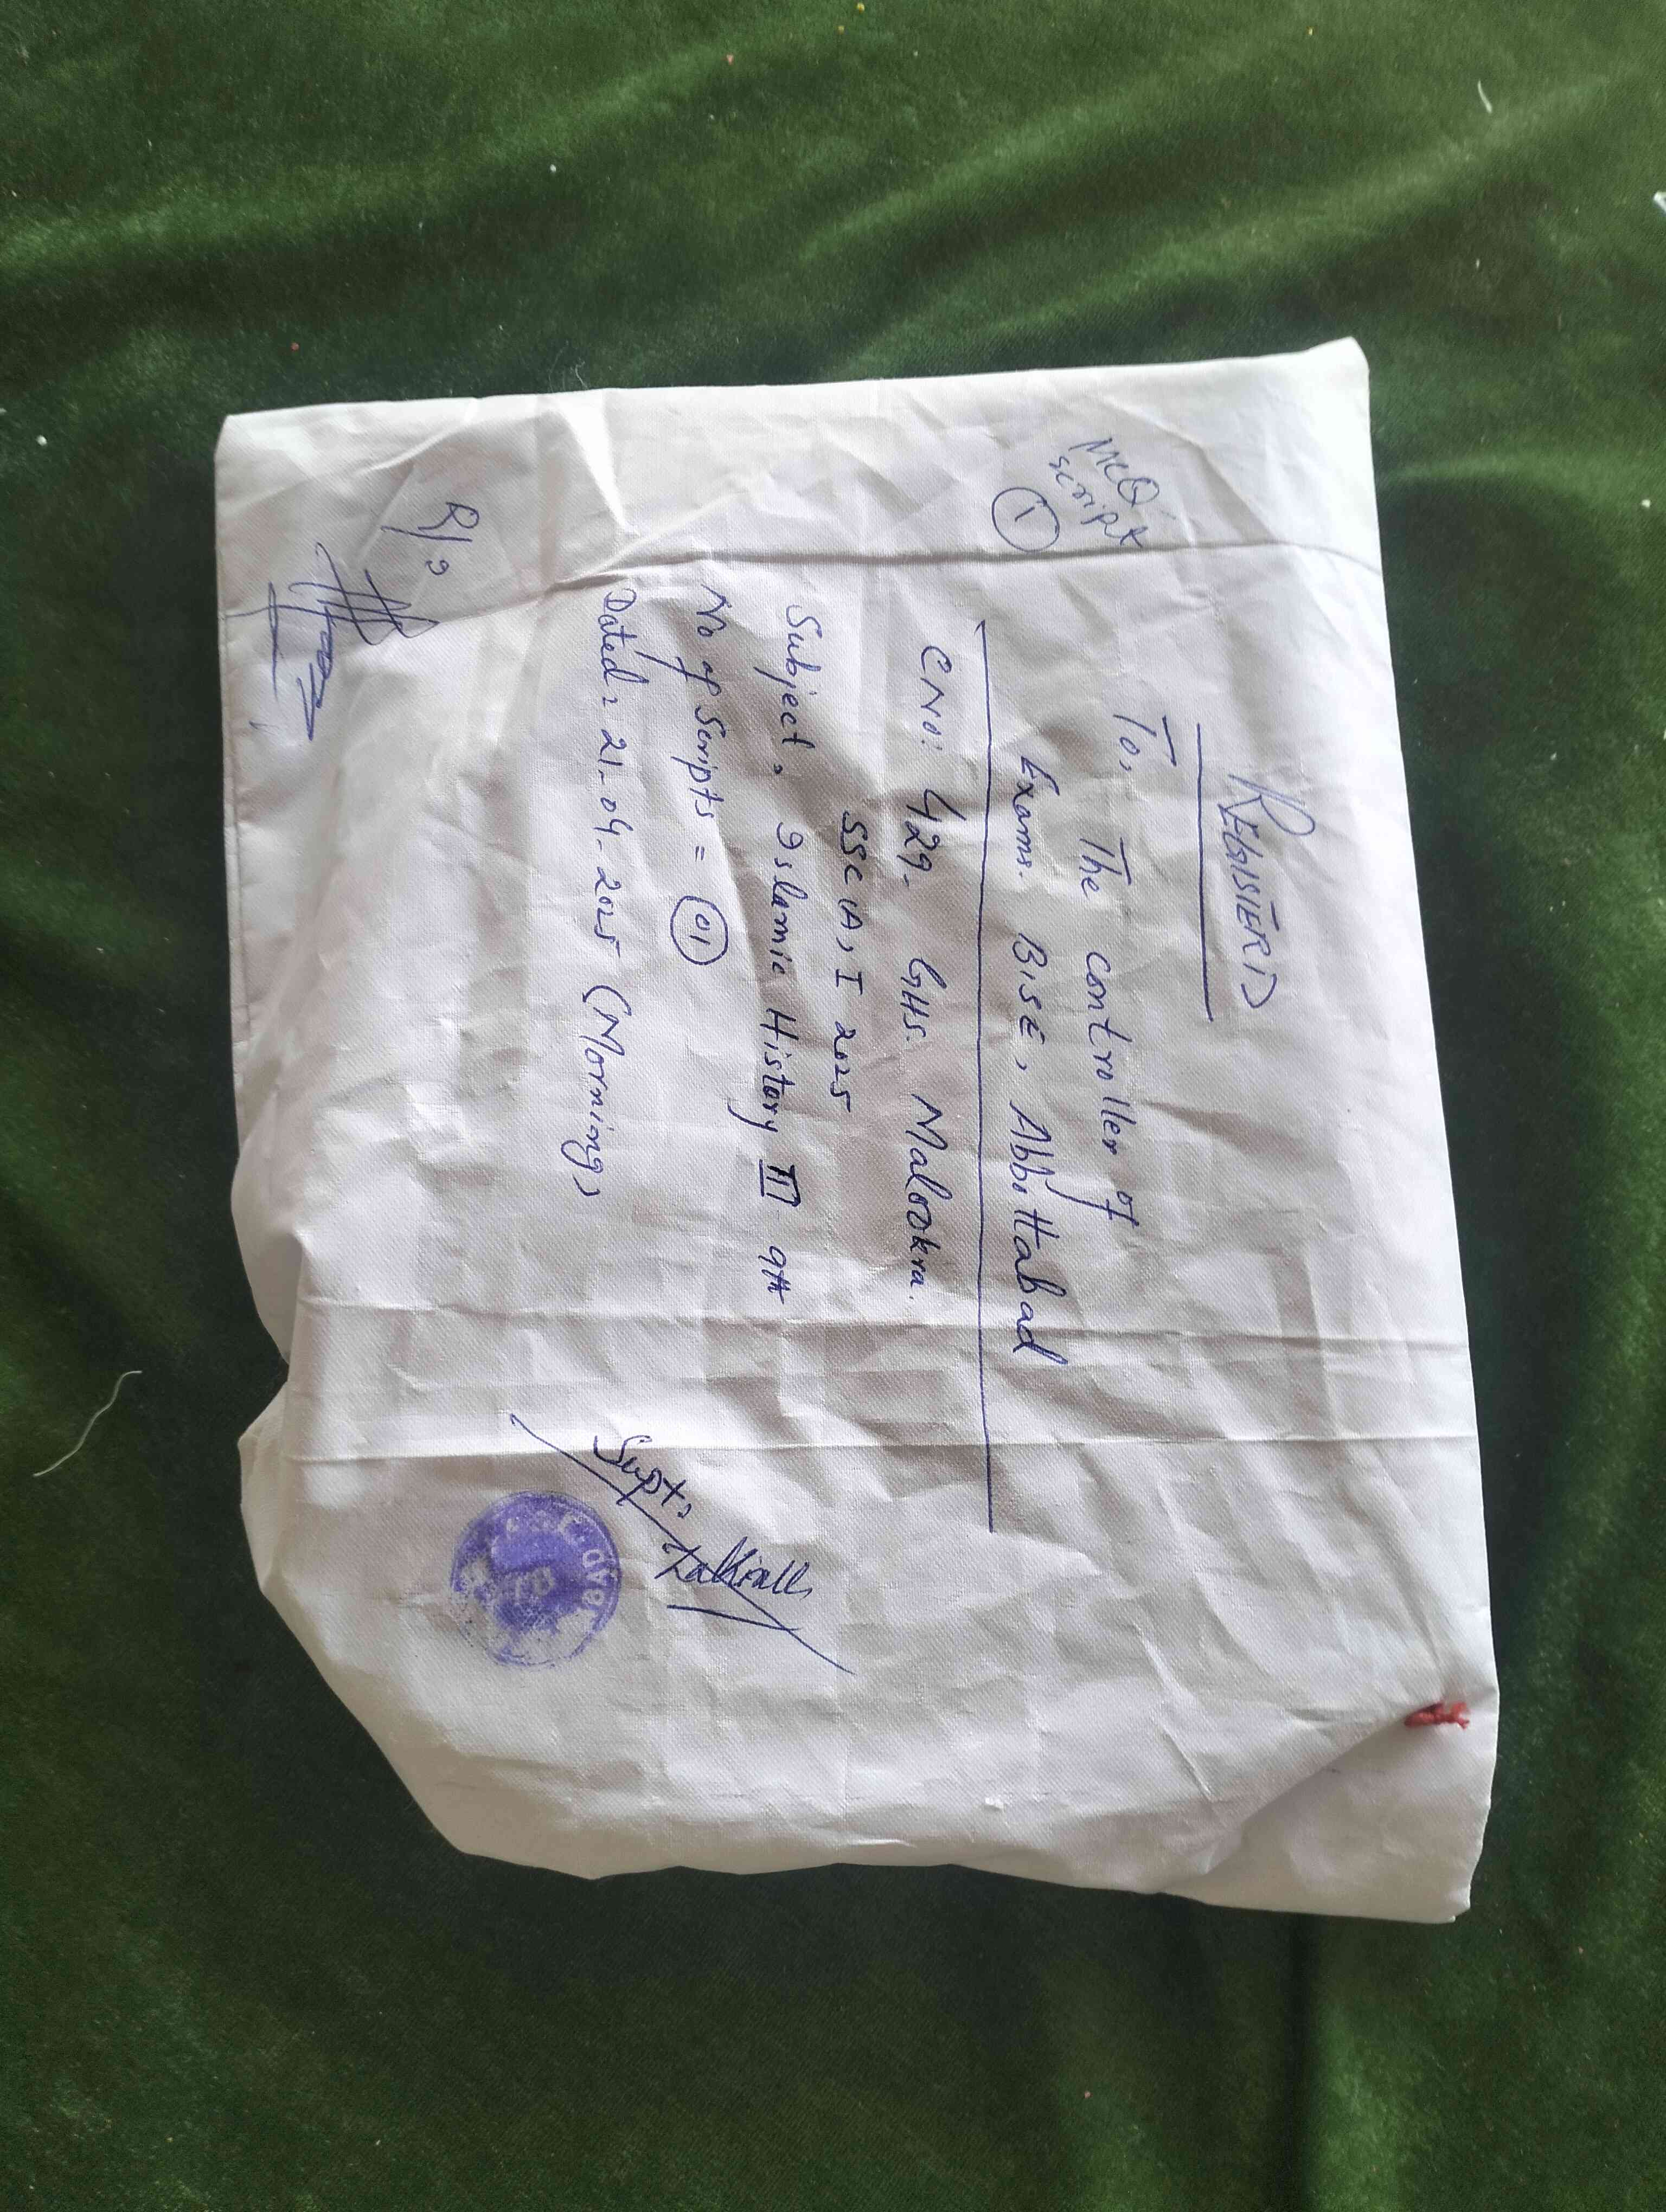 REGISTERD
MCQ
script
1
To, The controller of
Exams. BISE, Abbottabad
CNo: 429. GHS. Malookra.
SSC (A), I 2025
Subject: Islamic History III 9th
No of Scripts = 01
Dated: 21-04-2025 (Morning)
R/o
Supt: